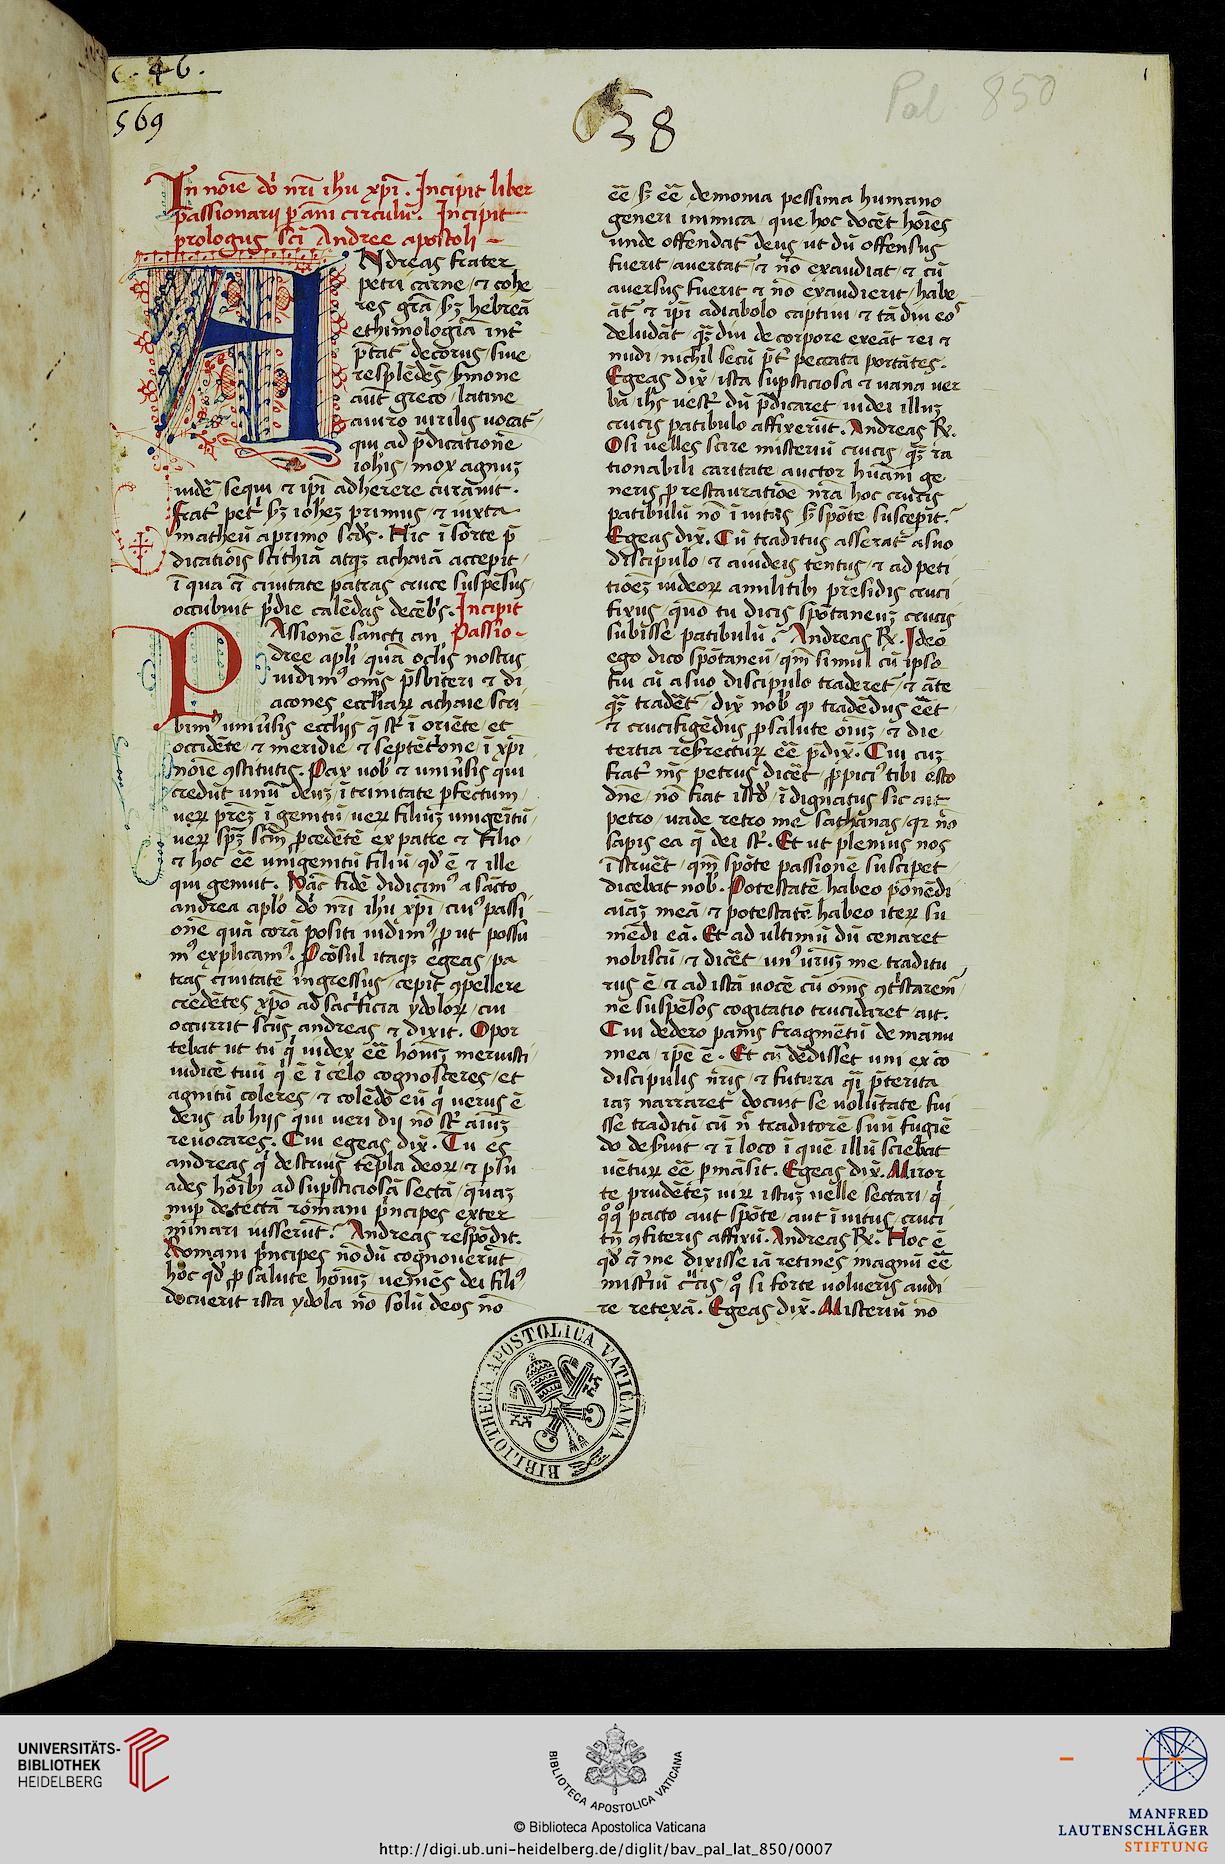 c. 46.
569
38
Pal. 850
1
In noīe dō nr̄i ih̄u xp̄i. Incipit liber
passionarii p anī circulū. Incipit
prologus sc̄i Andree apostoli
ANdreas frater
petri carne / ⁊ cohe
res gr̄a / sꝫ hebreā
ethimologiā int̄
p̄tat̄ decorus / siue
resplēdēs / s̄mone
aut̄ greco / latine
a uiro uirilis uocat̄
qui ad p̄dicationē
ioh̄is / mox agnuꝫ
uidēs sequi ⁊ ip̄i adherere curauit.
frat̄ petr̄ sꝫ ioh̄eꝫ primus / ⁊ iuxta
matheū a primo scd̄s. Hic ī sorte p̄
dicatiōis scithiā atqꝫ achaiā accepit
ī qua ⁊ ciuitate patras cruce suspēsus
occubuit p̄die calēdas decēb̄s. Incipit
PAssionē sancti an Passio
dree apl̄i quā oc̄lis nostris
uidimꝰ om̄s p̄sbiteri ⁊ di
acones eccl̄iarꝝ achaie scri
bimꝰ uniūsis eccl̄iis q̄ st̄ ī oriēte / et
occidēte / ⁊ meridie / ⁊ septētr̄one / ī xp̄i
noīe ꝯstitutis. Pax uob̄ ⁊ uniūsis qui
credūt unū deuꝫ / ī trinitate pfectum
uerꝝ p̄reꝫ ī genitū / uerꝝ filiuꝫ unigēitū
uerꝝ sp̄ꝫ sc̄m ꝓcedētē ex patre ⁊ filio
⁊ hoc ēe unigenitū filiū / qd̄ ē ⁊ ille
qui genuit. Hāc fidē didicimꝰ a sācto
andrea ap̄lo dō nr̄i ih̄u xp̄i / cuiꝰ passi
onē quā corā positi uidimꝰ / ꝓut possu
mꝰ explicamꝰ. Pcōsul itaqꝫ egeas / pa
tras ciuitatē ingressus / cepit ꝯpellere
credētes xp̄o ad sac̄ficia ydolorꝝ / cui
occurrit sc̄us andreas ⁊ dixit. Opor
tebat ut tu q̄ iudex ēe hoīuꝫ meruisti
iudicē tuū q̄ ē ī celo cognosceres / et
agnitū coleres / ⁊ colēdo eū q̄ uerus ē
deus / ab hiis qui ueri dii nō st̄ aīuꝫ
reuocares. Cui egeas dix̄. Tu es
andreas q̄ destruis tēpla deorꝝ ⁊ psu
ades hoībꝫ ad supsticiosā sectā / quaꝫ
nup detectā romani p̄ncipes exter
minari iusserūt? Andreas respōdit.
Romani p̄ncipes nōdū cognouerūt
hoc qd̄ ꝓ salute hoīuꝫ / ueniēs dei filiꝰ
docuerit ista ydola nō solū deos nō
ēe / sꝫ ēe demonia pessima humano
generi inimica / que hoc docēt hoīes
unde offendat̄ deus ut dū offensus
fuerit / auertat̄ ⁊ nō exaudiat ⁊ cū
auersus fuerit ⁊ nō exaudierit / habe
āt̄ ⁊ ip̄i a diabolo captiui / ⁊ tā diu eos
deludāt / qꝫ diu de corpore exeāt rei ⁊
nudi / nichil secū p̄t̄ peccata portātes.
Egeas dix̄ / ista supsticiosa ⁊ uana uer
ba / ih̄s uest̄ dū p̄dicaret / iudei illuꝫ
crucis patibulo affixerūt. Andreas Rx.
O si uelles scire misteriū crucis / qꝫ ra
tionabili caritate auctor hūani ge
neris ꝓ restauratiōe nr̄a hoc crucis
patibulū nō īuitus s̄ spōte suscepit.
Egeas dix̄. Cū traditus asserat̄ a suo
discipulo / ⁊ a iudeis tentus / ⁊ ad peti
tiōeꝫ iudeorꝝ a militibꝫ presidis cruci
fixus / quō tu dicis spōtaneuꝫ crucis
subisse patibulū? Andreas Rx. Ideo
ego dico spōtaneū / qm̄ simul cū ipso
fui cū a suo discipulo traderet̄ / ⁊ āte
qꝫ tradēt̄ / dix̄ nob̄ qꝫ tradēdus ēet
⁊ crucifigēdus ꝓ salute oīuꝫ / ⁊ die
tertia resrecturꝝ ēe p̄dix̄. Cui cuꝫ
frat̄ mꝰs petrus dicēt / ꝓpiciꝰ tibi esto
dn̄e / nō fiat istd̄ / īdignatus sic ait
petro / uade retro me sathanas / qr nō
sapis ea q̄ dei st̄. Et ut plenius nos
īstruēt / qm̄ spōte passionē suscipet
dicebat nob̄. Potestatē habeo ponēdi
aīaꝫ meā / ⁊ potestatē habeo iterꝝ su
mēdi eā. Et ad ultimū dū cenaret
nobiscū / ⁊ dicēt / unꝰ ur̄uꝫ me traditu
rus ē / ⁊ ad istā uocē cū om̄s ꝯt̄starem̄
ne suspēsos cogitatio trucidaret / ait.
Cui dedero panis fragmētū de manu
mea / ip̄e ē. Et cū dedisset uni ex cō
discipulis nr̄is / ⁊ futura q̄i p̄terita
iaꝫ narraret / docuit se uolūtate fui
sse traditū cū n̄ traditorē suū fugiē
do deseruit / ⁊ ī loco ī quē illū sciebat
uēturꝝ ēe pmāsit. Egeas dix̄. Miror
te prudēteꝫ uirꝝ istuꝫ uelle sectari / q̄
qͦqͦ pacto aut spōte / aut īuitus / cruci
tn̄ ꝯfiteris affixū. Andreas Rx. Hoc ē
qd̄ a me dixisse iā retines magnū ēe
mist̄iū cr̄cis / qͦ si forte uolueris audi
re retexā. Egeas dix̄. Misteriū nō
BIBLIOTHECA APOSTOLICA VATICANA
UNIVERSITÄTS-
BIBLIOTHEK
HEIDELBERG
BIBLIOTECA APOSTOLICA VATICANA
© Biblioteca Apostolica Vaticana
http://digi.ub.uni-heidelberg.de/diglit/bav_pal_lat_850/0007
MANFRED
LAUTENSCHLÄGER
STIFTUNG